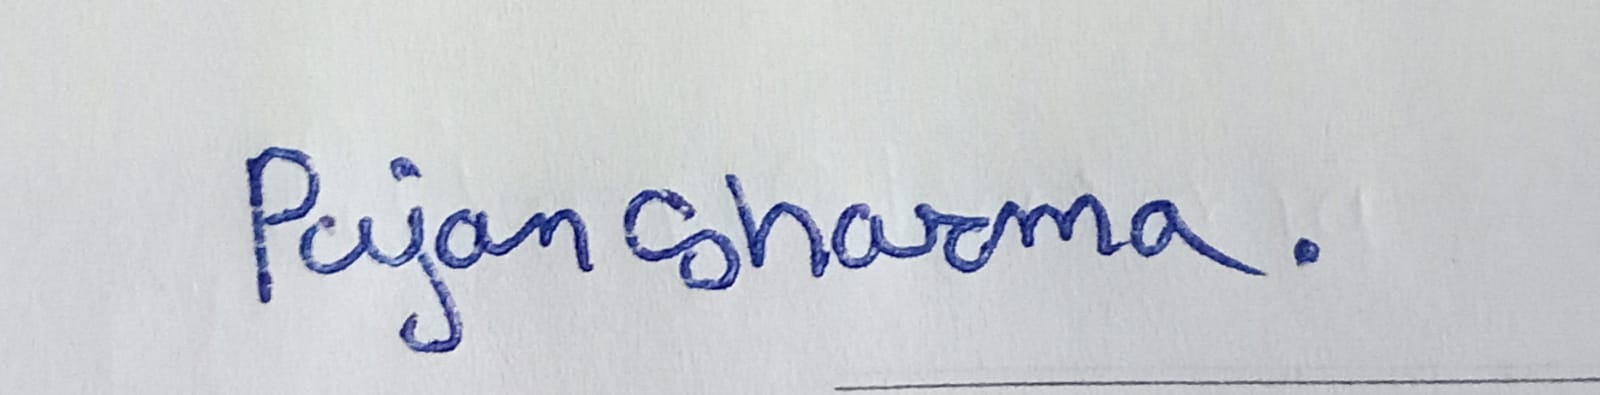 Pujan Sharma.